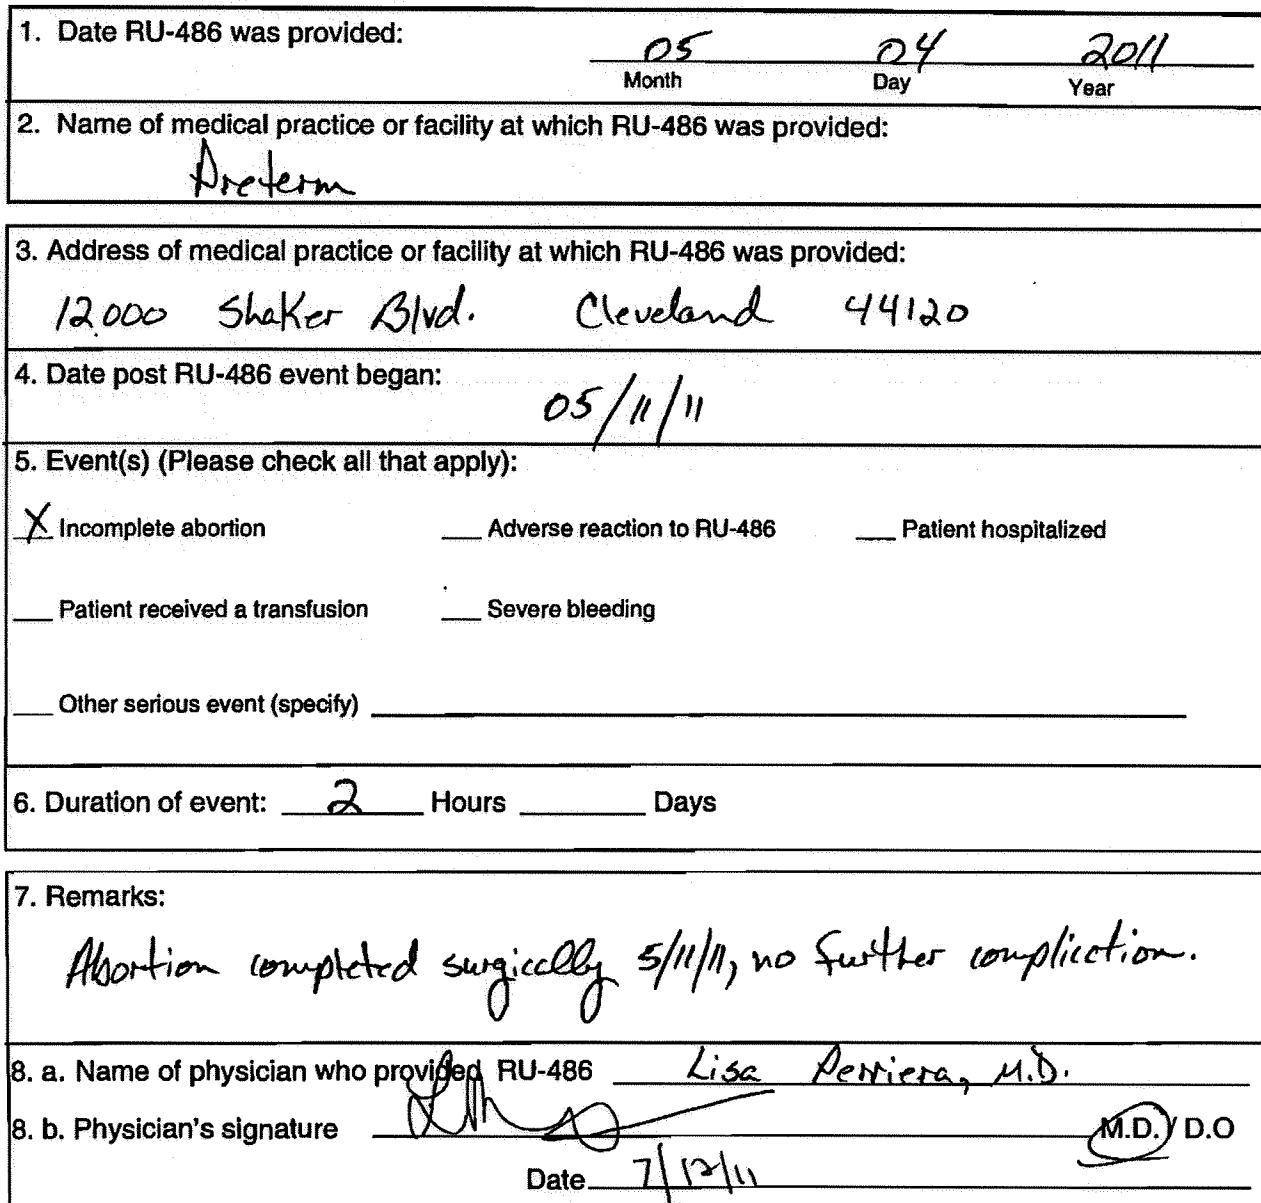 1. Date RU-486 was provided:
05 04 2011
Month Day Year
2. Name of medical practice or facility at which RU-486 was provided:
Preterm
3. Address of medical practice or facility at which RU-486 was provided:
12000 Shaker Blvd. Cleveland 44120
4. Date post RU-486 event began:
05/11/11
5. Event(s) (Please check all that apply):
X Incomplete abortion ___ Adverse reaction to RU-486 ___ Patient hospitalized
___ Patient received a transfusion ___ Severe bleeding
___ Other serious event (specify) ___
6. Duration of event: 2 Hours ___ Days
7. Remarks:
Abortion completed surgically 5/11/11, no further complication.
8. a. Name of physician who provided RU-486 Lisa Perriera, M.D.
8. b. Physician's signature M.D. / D.O
Date 7/12/11